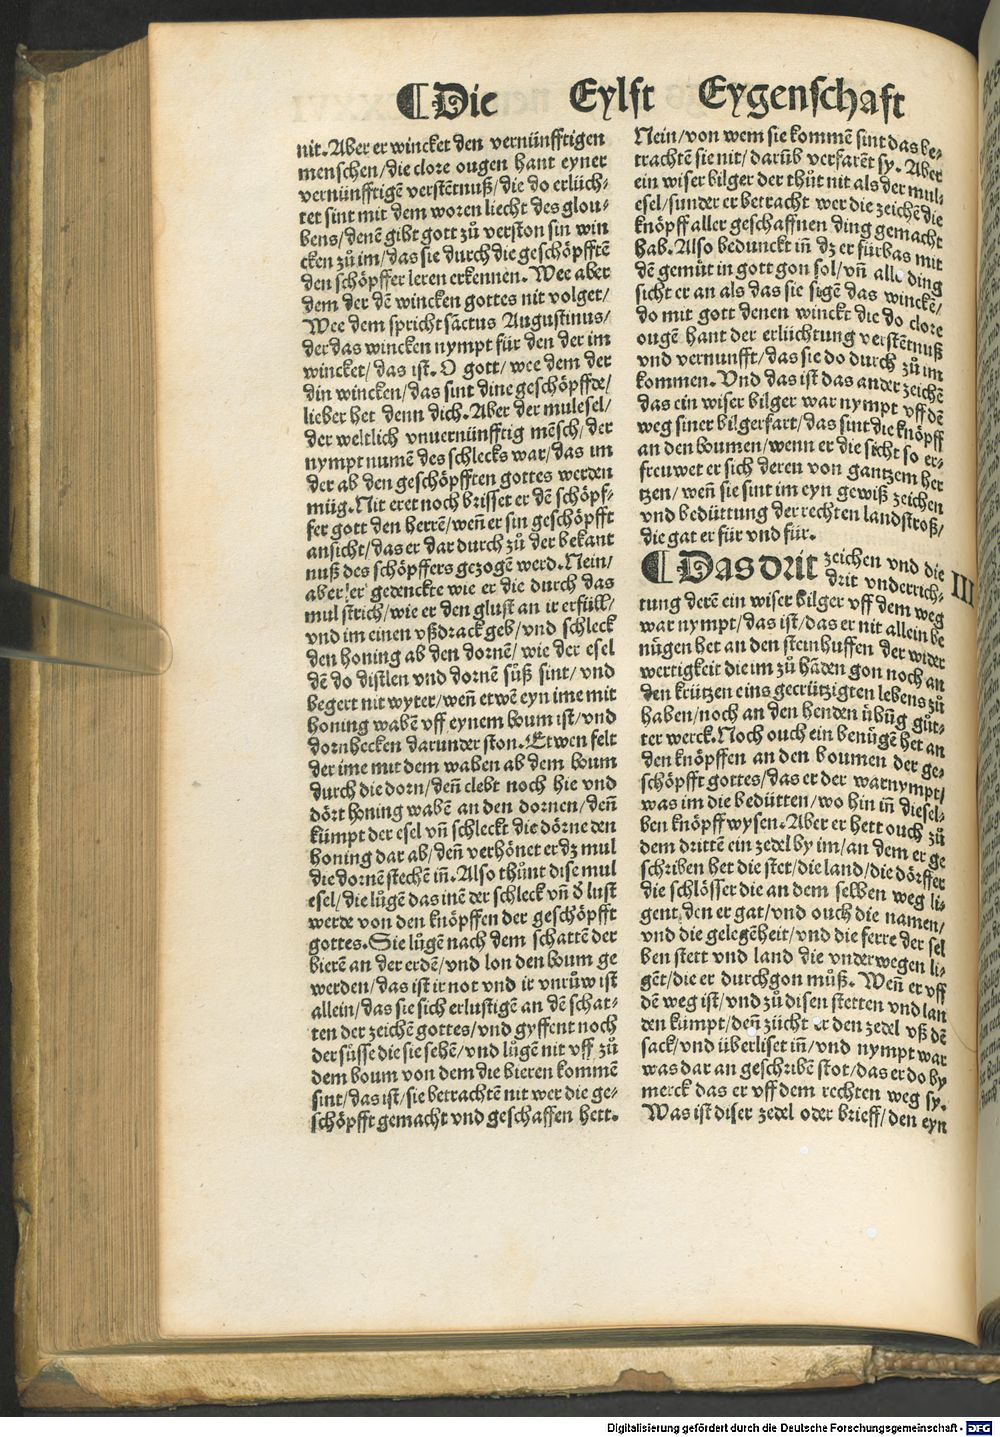 ⸿Die Eylft Eygenschaft
nit. Aber er wincket den vernünfftigen
menschen/die clore ougen hant eyner
vernünfftigē verstētnuß/die do erlüch-
tet sint mit dem woren liecht des glou-
bens/denē gibt gott zů verston sin win
cken zů im/das sie durch die geschöpfftē
den schöpffer leren erkennen. Wee aber
dem der dē wincken gottes nit volget/
Wee dem spricht sāctus Augustinus/
der das wincken nympt für den der im
wincket/das ist. O gott/wee dem der
din wincken/das sint dine geschöpffde/
lieber het denn dich. Aber der mulesel/
der weltlich vnuernünfftig mēsch/der
nympt numē des schlecks war/das im
der ab den geschöpfften gottes werden
müg. Nit eret noch brisset er dē schöpf-
fer gott den herrē/weñ er sin geschöpfft
ansicht/das er dar durch zů der bekant
nuß des schöpffers gezogē werd. Nein/
aber er gedenckte wie er die durch das
mul strich/wie er den glust an ir erfüll/
vnd im einen vßdrack geb/vnd schleck
den honing ab den dornē/wie der esel
dē do distlen vnd dornē sůß sint/vnd
begert nit wyter/weñ etwē eyn ime mit
honing wabē vff eynem boum ist/vnd
dornhecken darunder ston. Etwen felt
der ime mit dem waben ab dem boum
durch die dorn/deñ clebt noch hie vnd
dört honing wabē an den dornen/deñ
kümpt der esel vñ schleckt die dörne den
honing dar ab/deñ verhönet er dz mul
die dornē stechē iñ. Also thůnt dise mul
esel/die lůgē das inē der schleck vñ d̕ lust
werde von den knöpffen der geschöpfft
gottes. Sie lügē nach dem schattē der
bierē an der erdē/vnd lon den boum ge
werden/das ist ir not vnd ir vnrůw ist
allein/das sie sich erlustigē an dē schat-
ten der zeichē gottes/vnd gyffent noch
der süsse die sie sehē/vnd lůgē nit vff zů
dem boum von dem die bieren kommē
sint/das ist/sie betrachtē nit wer die ge-
schöpfft gemacht vnd geschaffen hett.
Nein/von wem sie kommē sint das be-
trachtē sie nit/darüb verfarēt sy. Aber
ein wiser bilger der thůt nit als der mul-
esel/sunder er betracht wer die zeichē die
knöpff aller geschaffnen ding gemacht
hab. Also bedunckt iñ dz er fürbas mit
dē gemüt in gott gon sol/vñ all ding
sicht er an als das sie sigē das winckē/
do mit gott denen winckt die do clore
ougē hant der erlüchtung verstētnuß
vnd vernunfft/das sie do durch zů im
kommen. Vnd das ist das ander zeichē
das ein wiser bilger war nympt vff dē
weg siner bilgerfart/das sint die knöpff
an den boumen/wenn er die sicht so er-
freuwet er sich deren von gantzem her
tzen/weñ sie sint im eyn gewiß zeichen
vnd bedüttung der rechten landstroß/
die gat er für vnd für.
⸿Das drit zeichen vnd die III
drit vnderrich-
tung derē ein wiser bilger vff dem weg
war nympt/das ist/das er nit allein be
nügen het an den steinhuffen der wider
wertigkeit die im zů hāden gon noch an
den krützen eins gecrützigten lebens zů
haben/noch an den henden übūg gůt-
ter werck. Noch ouch ein benügē het an
den knöpffen an den boumen der ge-
schöpfft gottes/das er der warnympt/
was im die bedütten/wo hin iñ diesel-
ben knöpff wysen. Aber er hett ouch zů
dem drittē ein zedel by im/an dem er ge
schriben het die stet/die land/die dörffer
die schlösser die an dem selben weg li-
gent den er gat/vnd ouch die namen/
vnd die gelegēheit/vnd die ferre der sel
ben stett vnd land die vnderwegen li-
gēt/die er durchgon můß. Weñ er vff
dē weg ist/vnd zů disen stetten vnd lan
den kumpt/deñ zücht er den zedel vß dē
sack/vnd überliset iñ/vnd nympt war
was dar an geschribē stot/das er do by
merck das er vff dem rechten weg sy.
Was ist diser zedel oder brieff/den eyn
Digitalisierung gefördert durch die Deutsche Forschungsgemeinschaft - DFG